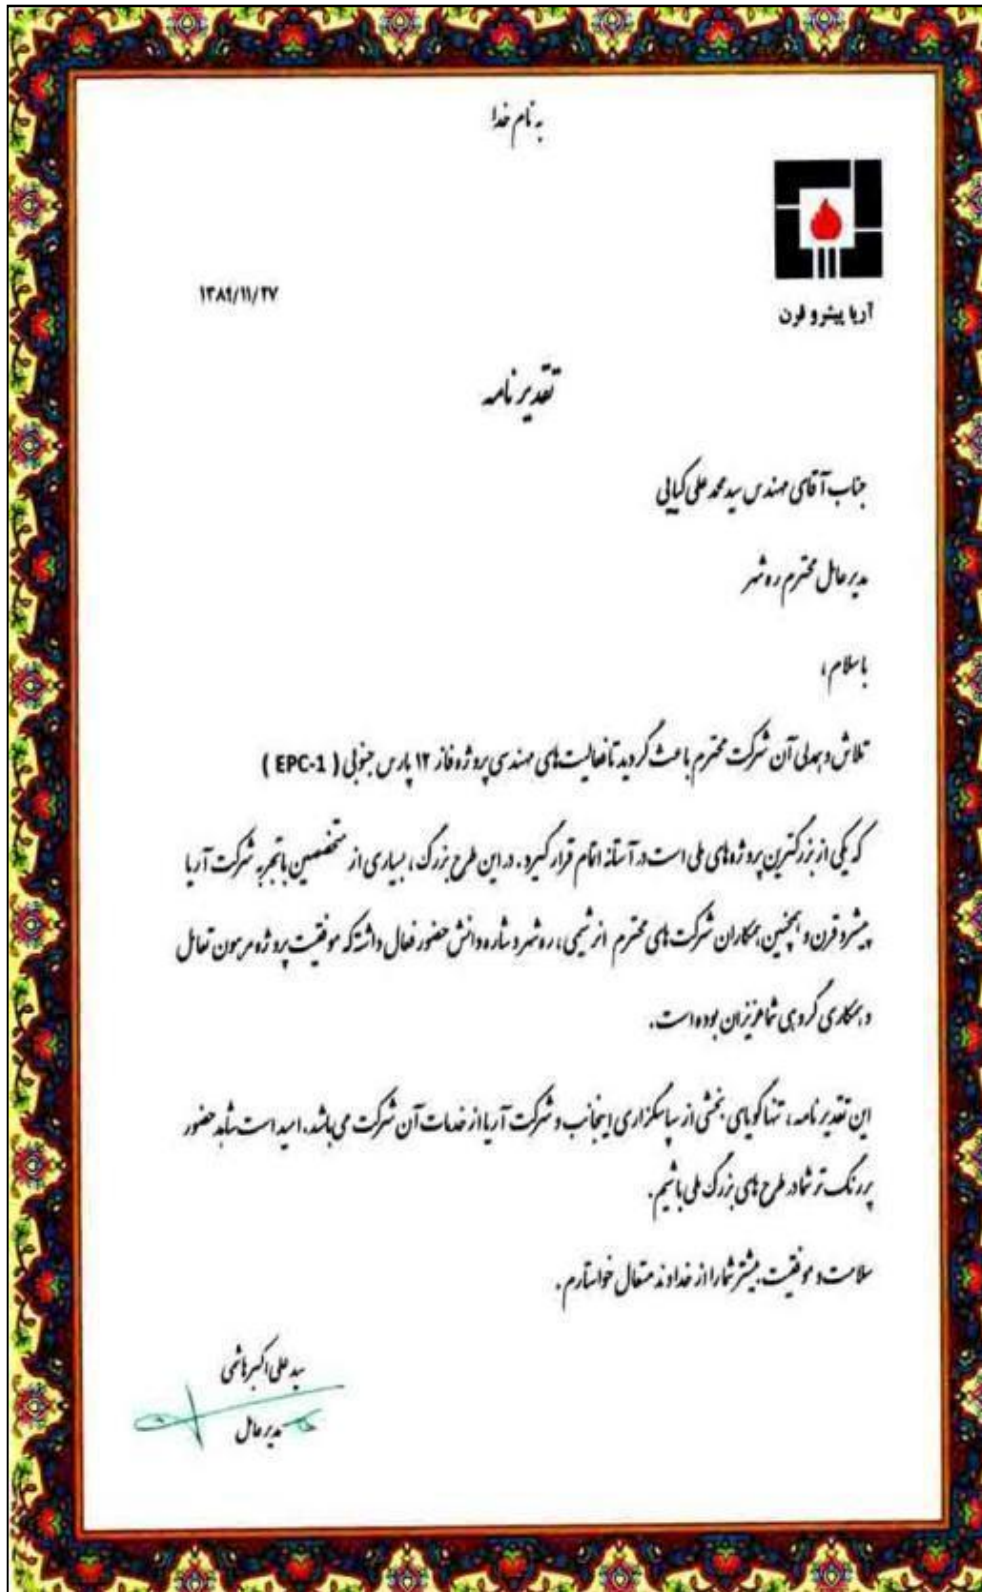 به نام خدا
آریا پیشرو قرن
۱۳۸۹/۱۱/۲۷
تقدیر نامه
جناب آقای مهندس سید محمد علی کیایی
مدیر عامل محترم ره شهر
با سلام ،
تلاش و همدلی آن شرکت محترم باعث گردید تا فعالیت های مهندسی پروژه فاز ۱۲ پارس جنوبی ( EPC-1 )
که یکی از بزرگترین پروژه های ملی است در آستانه اتمام قرار گیرد . در این طرح بزرگ ، بسیاری از متخصصین با تجربه شرکت آریا
پیشرو قرن و همچنین همکاران شرکت های محترم انرشیمی ، ره شهر و سازه دانش حضور فعال داشته که موفقیت پروژه مرهون تعامل
و همکاری گروهی شما عزیزان بوده است .
این تقدیر نامه ، تنها گویای بخشی از سپاسگزاری اینجانب و شرکت آریا از خدمات آن شرکت می باشد . امید است شاهد حضور
پررنگ تر شما در طرح های بزرگ ملی باشیم .
سلامت و موفقیت بیشتر شما را از خداوند متعال خواستارم .
سید علی اکبر هاشمی
مدیر عامل